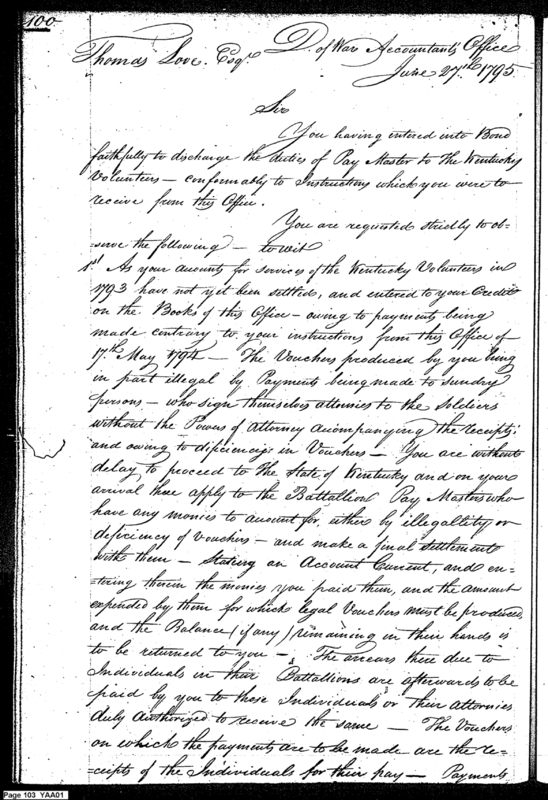 100
D. of War Accountants Office
Thomas Love. Esqr.
June 27th. 1795.
Sir
You having entered into Bond
faithfully to discharge the duties of Pay Master to the Kentucky
Volunteers — conformably to Instructions which you were to
receive from this Office.
You are requested strictly to ob=
=serve the following — to wit
1st. As your accounts for services of the Kentucky Volunteers in
1793 have not yet been settled, and entered to your Credit
on the Books of this Office — owing to payments being
made contrary to your instructions from this Office of
17th May 1794 — The Vouchers produced by you being
in part illegal by Payments being made to sundry
persons — who sign themselves attornies to the Soldiers
without the Powers of Attorney accompanying the receipts.
and owing to deficiency in Vouchers — You are without
delay to proceed to the State of Kentucky and on your
arrival there apply to the Battallion Pay Masters who
have any monies to account for, either by illegallity or
deficiency of Vouchers — and make a final settlement
with them — Stating an Account Current, and en=
=tering therein the monies you paid them, and the amount
expended by them for which legal Vouchers must be produced,
and the Balance (if any) remaining in their hands is
to be returned to you — The arrears there due to
Individuals in their Battallions are afterwards to be
paid by you to those Individuals or their attornies
duly authorized to receive the same — The Vouchers
on which the payments are to be made are the re=
=ceipts of the Individuals for their pay — Payments
Page 103 YAA01